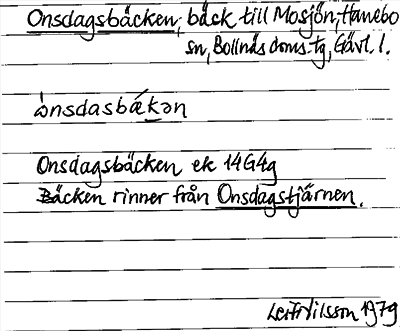 Onsdagsbäcken, bäck till Mosjön, Hanebo
sn, Bollnäs doms.tg, Gävl. l.
ònsdasbǽkən
Onsdagsbäcken ek 14G4g
Bäcken rinner från Onsdagstjärnen.
Leif Nilsson 1979